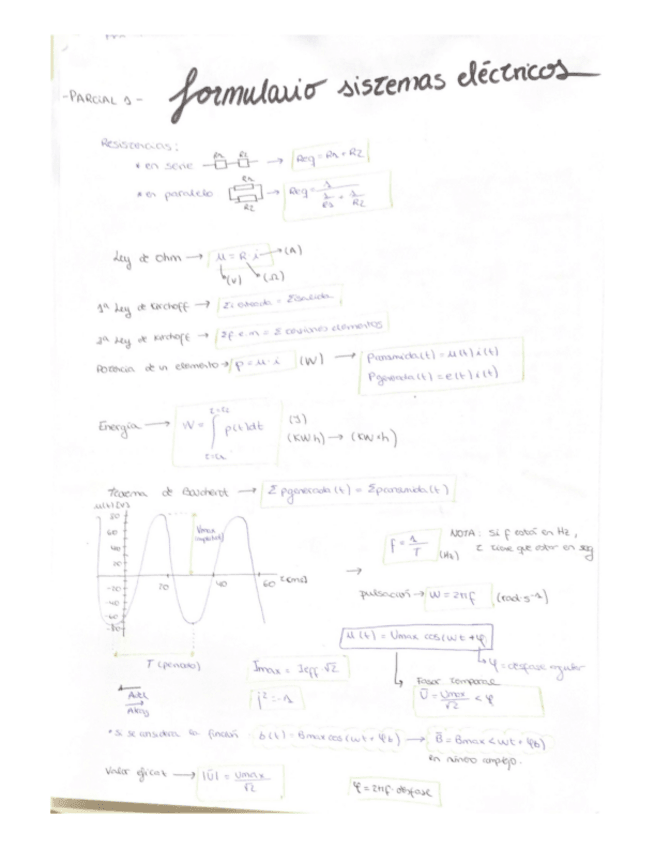 -PARCIAL 1- formulario sistemas eléctricos
Resistencias:
• en serie R1 R2 → Req = R1 + R2
• en paralelo R1 R2 → Req = 1 / (1/R1 + 1/R2)
Ley de Ohm → u = R · i → (A)
(V) (Ω)
1ª Ley de Kirchoff → Σi entrada = Σ salida
2ª Ley de Kirchoff → Σf.e.m = Σ tensiones elementos
Potencia de un elemento → p = u · i (W) → Pconsumida(t) = u(t) i(t)
Pgenerada(t) = e(t) i(t)
Energía → W = ∫ p(t)dt (J)
(KWh) → (KW·h)
Teorema de Boucherot → Σ Pgenerada(t) = Σ Pconsumida(t)
u(t) [V]
80
60
40
20
-20
-40
-60
-80
20 40 60 t(ms)
Vmax
T (periodo)
f = 1/T (Hz)
NOTA: Si f está en Hz,
T tiene que estar en seg
→ pulsación → W = 2πf (rad·s⁻¹)
u(t) = Umax cos(wt + φ)
φ = desfase angular
Fasor temporal
Ū = Umax/√2 < φ
Imax = Ieff √2
j² = -1
Adel
Atras
• si se considera la función b(t) = Bmax cos(wt + φb) → B̄ = Bmax < wt + φb)
en número complejo.
Valor eficaz → |Ū| = Umax/√2
φ = 2πf · desfase